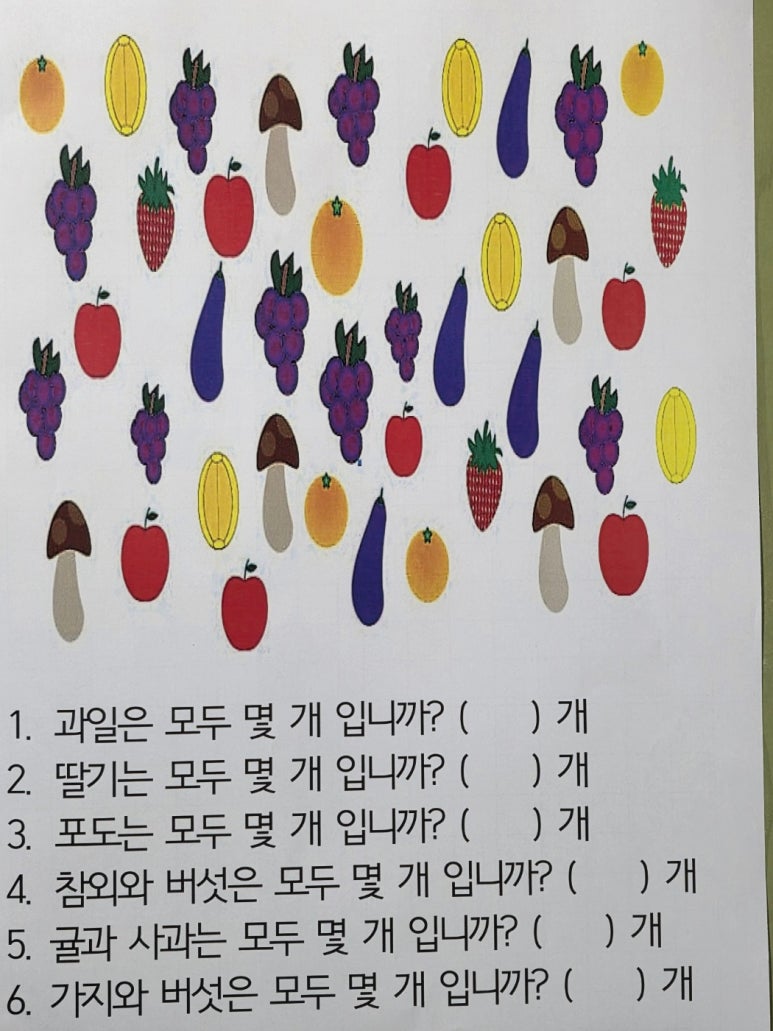 1. 과일은 모두 몇 개 입니까? (    ) 개
2. 딸기는 모두 몇 개 입니까? (    ) 개
3. 포도는 모두 몇 개 입니까? (    ) 개
4. 참외와 버섯은 모두 몇 개 입니까? (    ) 개
5. 귤과 사과는 모두 몇 개 입니까? (    ) 개
6. 가지와 버섯은 모두 몇 개 입니까? (    ) 개